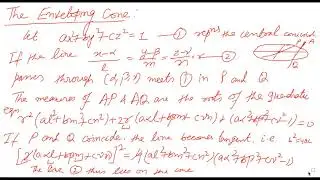 The Enveloping Cone:
Let ax²+by²+cz²=1 — ① reprs the central conicoid
If the line (x-α)/l = (y-β)/m = (z-γ)/n = r — ②
passes through (α,β,γ) meets ① in P and Q
A P Q
The measures of AP & AQ are the roots of the quadratic
eqn r²(al²+bm²+cn²)+2r(aαl+bβm+cγn)+(aα²+bβ²+cγ²-1)=0
If P and Q coincide, the line becomes tangent. i.e b²=4ac
[2(aαl+bβm+cγn)]²=4(al²+bm²+cn²)(aα²+bβ²+cγ²-1)
The line ② thus lies on the cone